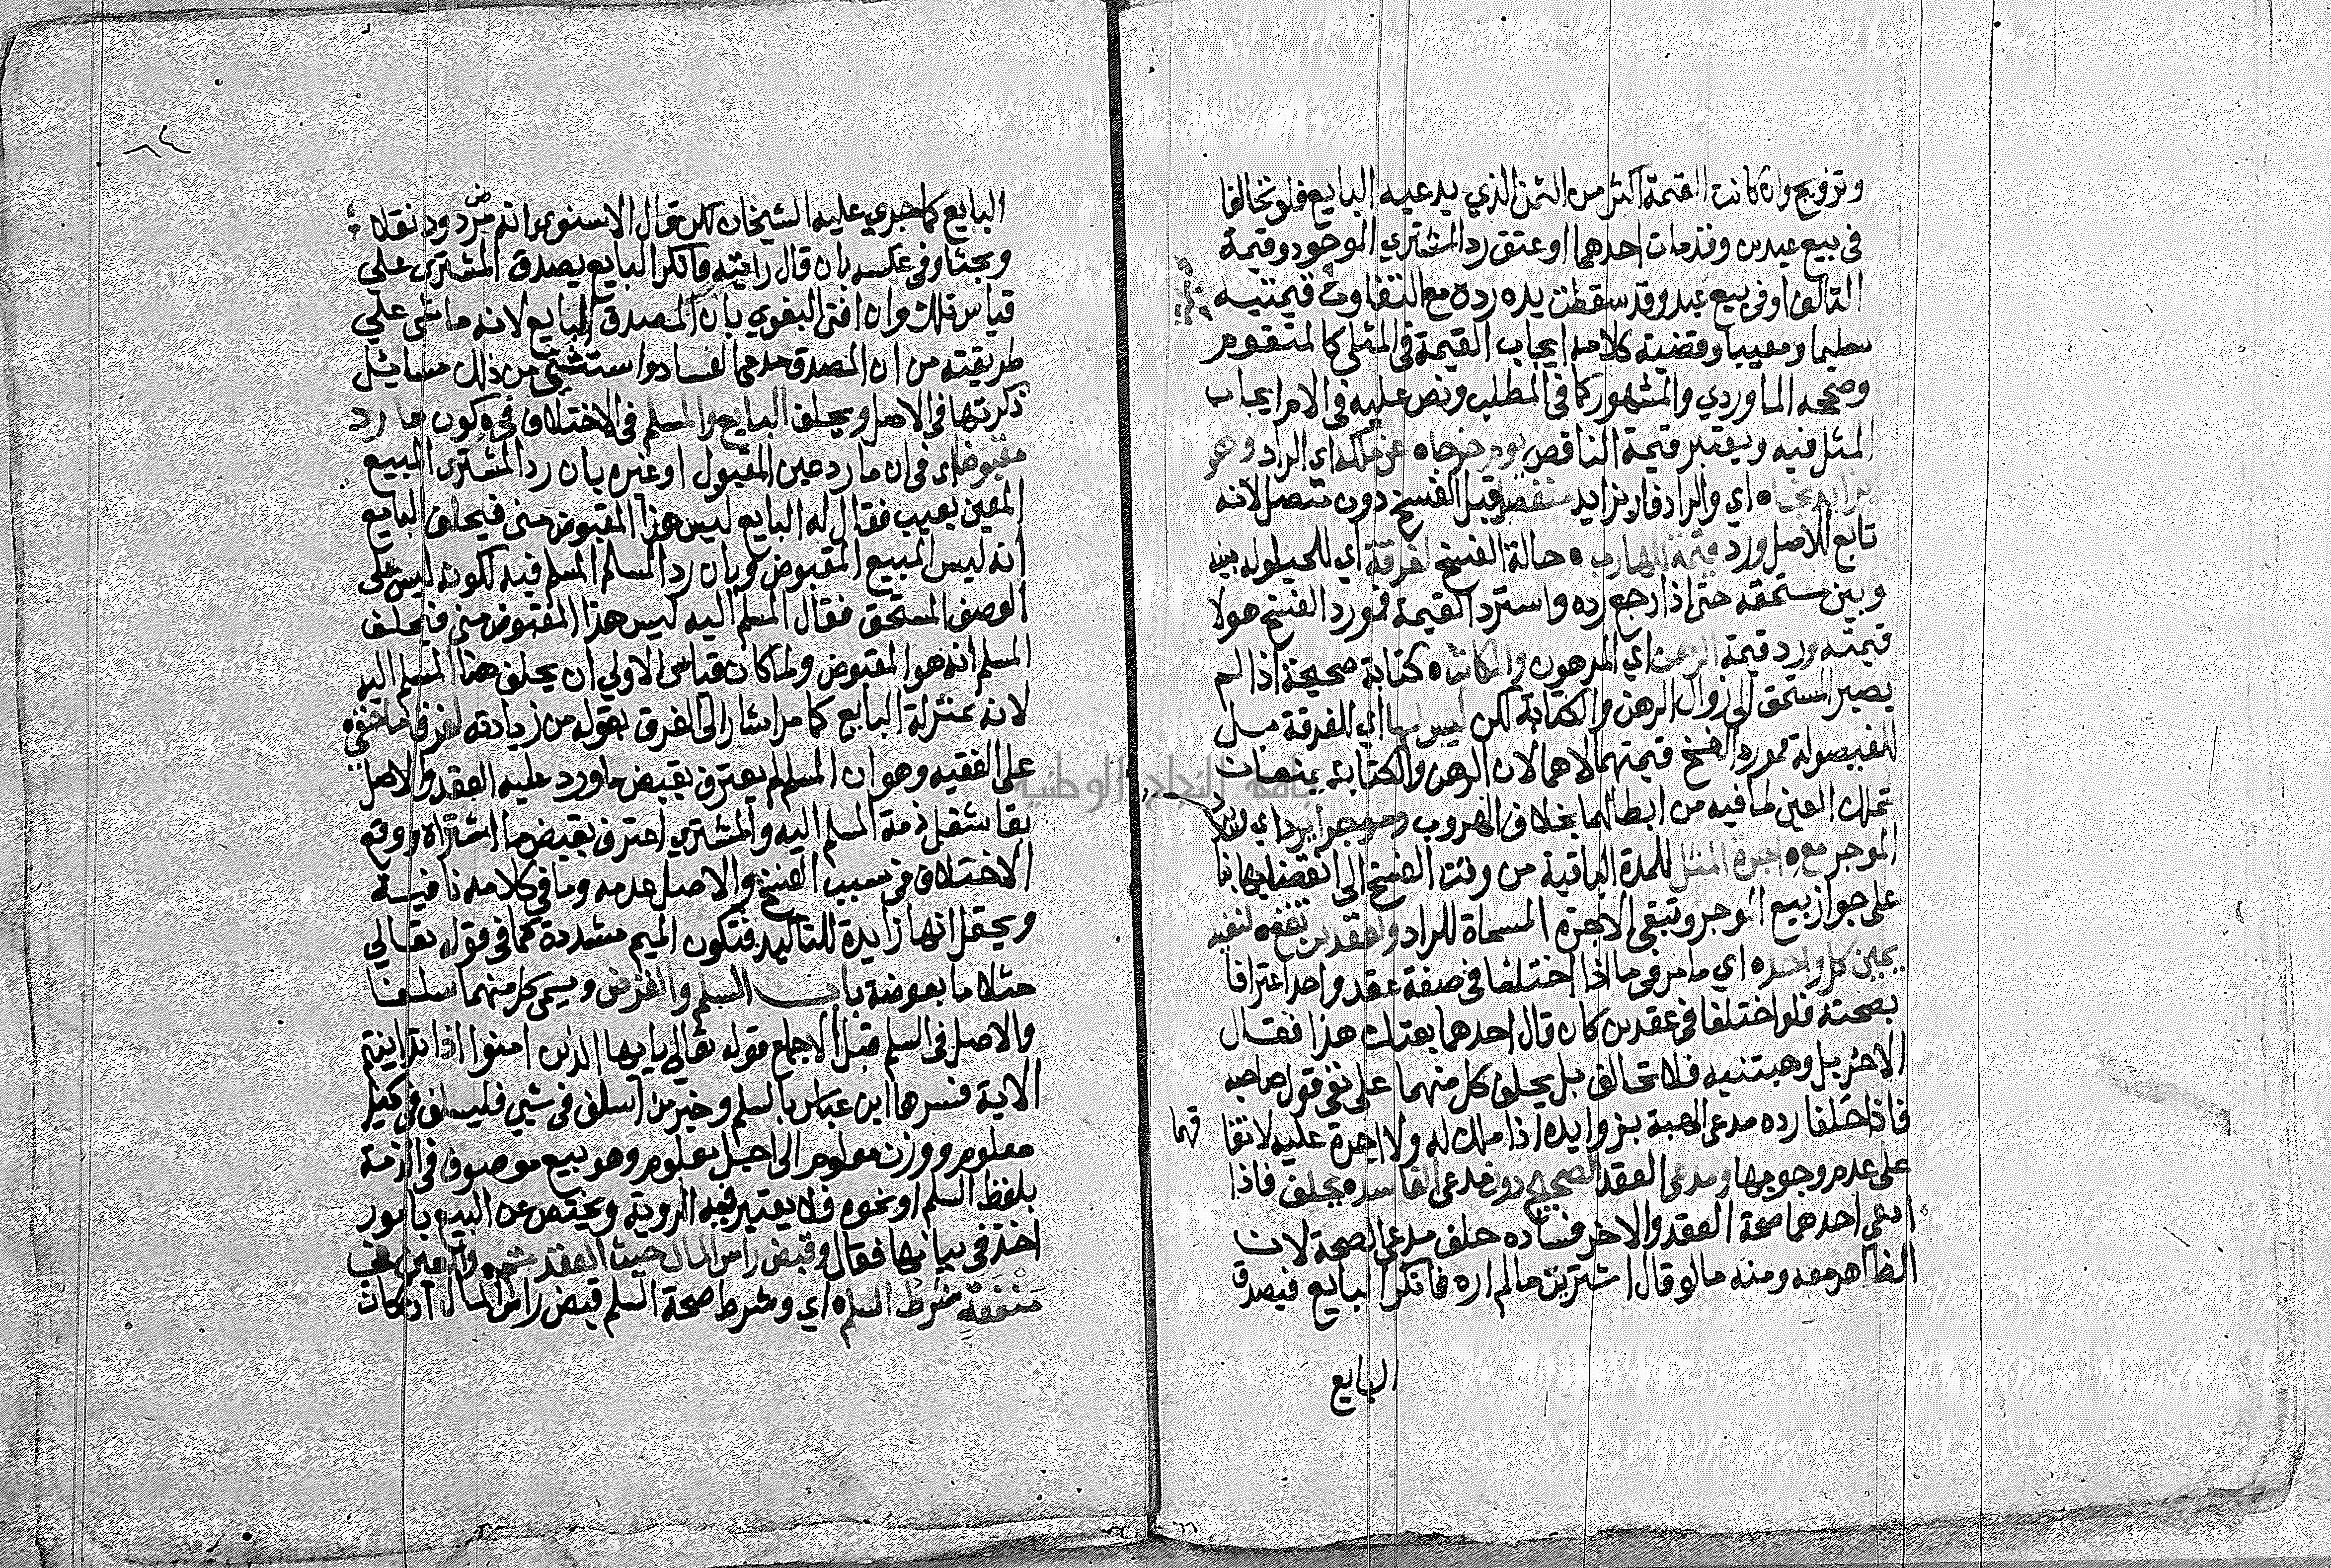 وتزويج وان كانت القيمة اكثر من الثمن الذي يدعيه البايع فلو تخالفا
في بيع عبدين وقد مات احدهما او عتق رد المشتري الموجود وقيمة
التالف او في بيع عبد وقد سقطت يده رده مع التفاوت قيمتيه
سليما ومعيبا وقضية كلامه ايجاب القيمة في المثلي كالمتقوم
وصححه الماوردي والمشهور كما في المطلب ونص عليه في الام ايجاب
المثل فيه ويعتبر قيمة الناقص يوم خرجاه عن ملكه اي الراد وهو
اي والراد فاز بزايد منفصل قبل الفسخ دون متصل لانه
تابع للاصل ورد قيمة الهارب ه حالة الفسخ لفرقة اي للحيلولة بينه
وبين مستحقه حتى اذا رجع رده واسترد القيمة فمورد الفسخ هو لا
قيمته ورد قيمة الرهن اي المرهون والمكاتب ه كتابة صحيحة اذا لم
يصير المستحق الى زوال الرهن والكتابة لكن ليس لها اي للفرقة بل
للفيصولة فمورد الفسخ قيمتهما لا هما لان الرهن والكتابة يمنعان
تملك العين لما فيه من ابطالهما بخلاف الهروب وموجرا يرد اي
الموجر مع ه اجرة المثل للمدة الباقية من وقت الفسخ الى انقضايها بنا
على جواز بيع الموجر وتبقى الاجرة المسماة للراد
يمين كل واحد ه اي ما مر في ما اذا اختلفا في صفة عقد واحد اعترافا
بصحته فلو اختلفا في عقدين كان قال احدهما بعتك هذا فقال
الاخر بل وهبتنيه فلا تحالف بل يحلف كل منهما على نفي قول صاحبه
فاذا حلفا رده مدعي الهبة بزوايده اذ لا ملك له ولا اجرة عليه لاتفاقهما
على عدم وجوبها ومدعي العقد الصحيح دون مدعي الفاسد ه يحلف فاذا
ادعي احدهما صحة العقد والاخر فساده حلف مدعي الصحة لان
الظاهر معه ومنه ما لو قال اشتريت ما لم اره فانكر البايع فيصدق
البايع
٦٤
البايع كما جري عليه الشيخان لكن قال الاسنوي انه مردود نقلا
وبحثا وفي عكسه بان قال رايته وانكر البايع يصدق المشتري علي
قياس ذلك وان افتى البغوي بان المصدق البايع لانه ماش علي
طريقته من ان المصدق مدعي الفساد واستثني من ذلك مسايل
ذكرتها في الاصل ويحلف البايع والمسلم في الاختلاف في كون ما رد
مقبوضا اي في ان ما رد عين المقبول او غيره بان رد المشتري المبيع
المعين بعيب فقال له البايع ليس هذا المقبوض مني فيحلف البايع
انه ليس المبيع المقبوض او بان رد المسلم المسلم فيه لكونه ليس على
الوصف المستحق فقال المسلم اليه ليس هذا المقبوض مني فيحلف
المسلم انه هو المقبوض ولما كان قياس الاولي ان يحلف هنا المسلم اليه
لانه بمنزلة البايع كما مر اشار الى الفرق بقوله من زيادته لفرق ما خفي ه
على الفقيه وهو ان المسلم لم يعترف بقبض ما ورد عليه العقد والاصل
بقا شغل ذمة المسلم اليه والمشتري اعترف بقبض ما اشتراه ووقع
الاختلاف في سبب الفسخ والاصل عدمه وما في كلامه نافية
ويحتمل انها زايدة للتاكيد فتكون الميم مشددة كما في قوله تعالي
مثلا ما بعوضة باب السلم والقرض ويسمى كل منهما سلفا
والاصل في السلم قبل الاجماع قوله تعالى يا ايها الذين امنوا اذا تداينتم
الاية فسرها ابن عباس بالسلم وخبر من اسلف في شيي فليسلف في كيل
معلوم ووزن معلوم الى اجل معلوم وهو بيع موصوف في الذمة
بلفظ السلم او نحوه فلا يعتبر فيه الروية ويختص عن البيع بامور
اخذ في بيانها فقال وقبض راس المال حيث العقد
منفعة شرط السلم ه اي وشرط صحة السلم قبض راس المال ان كان